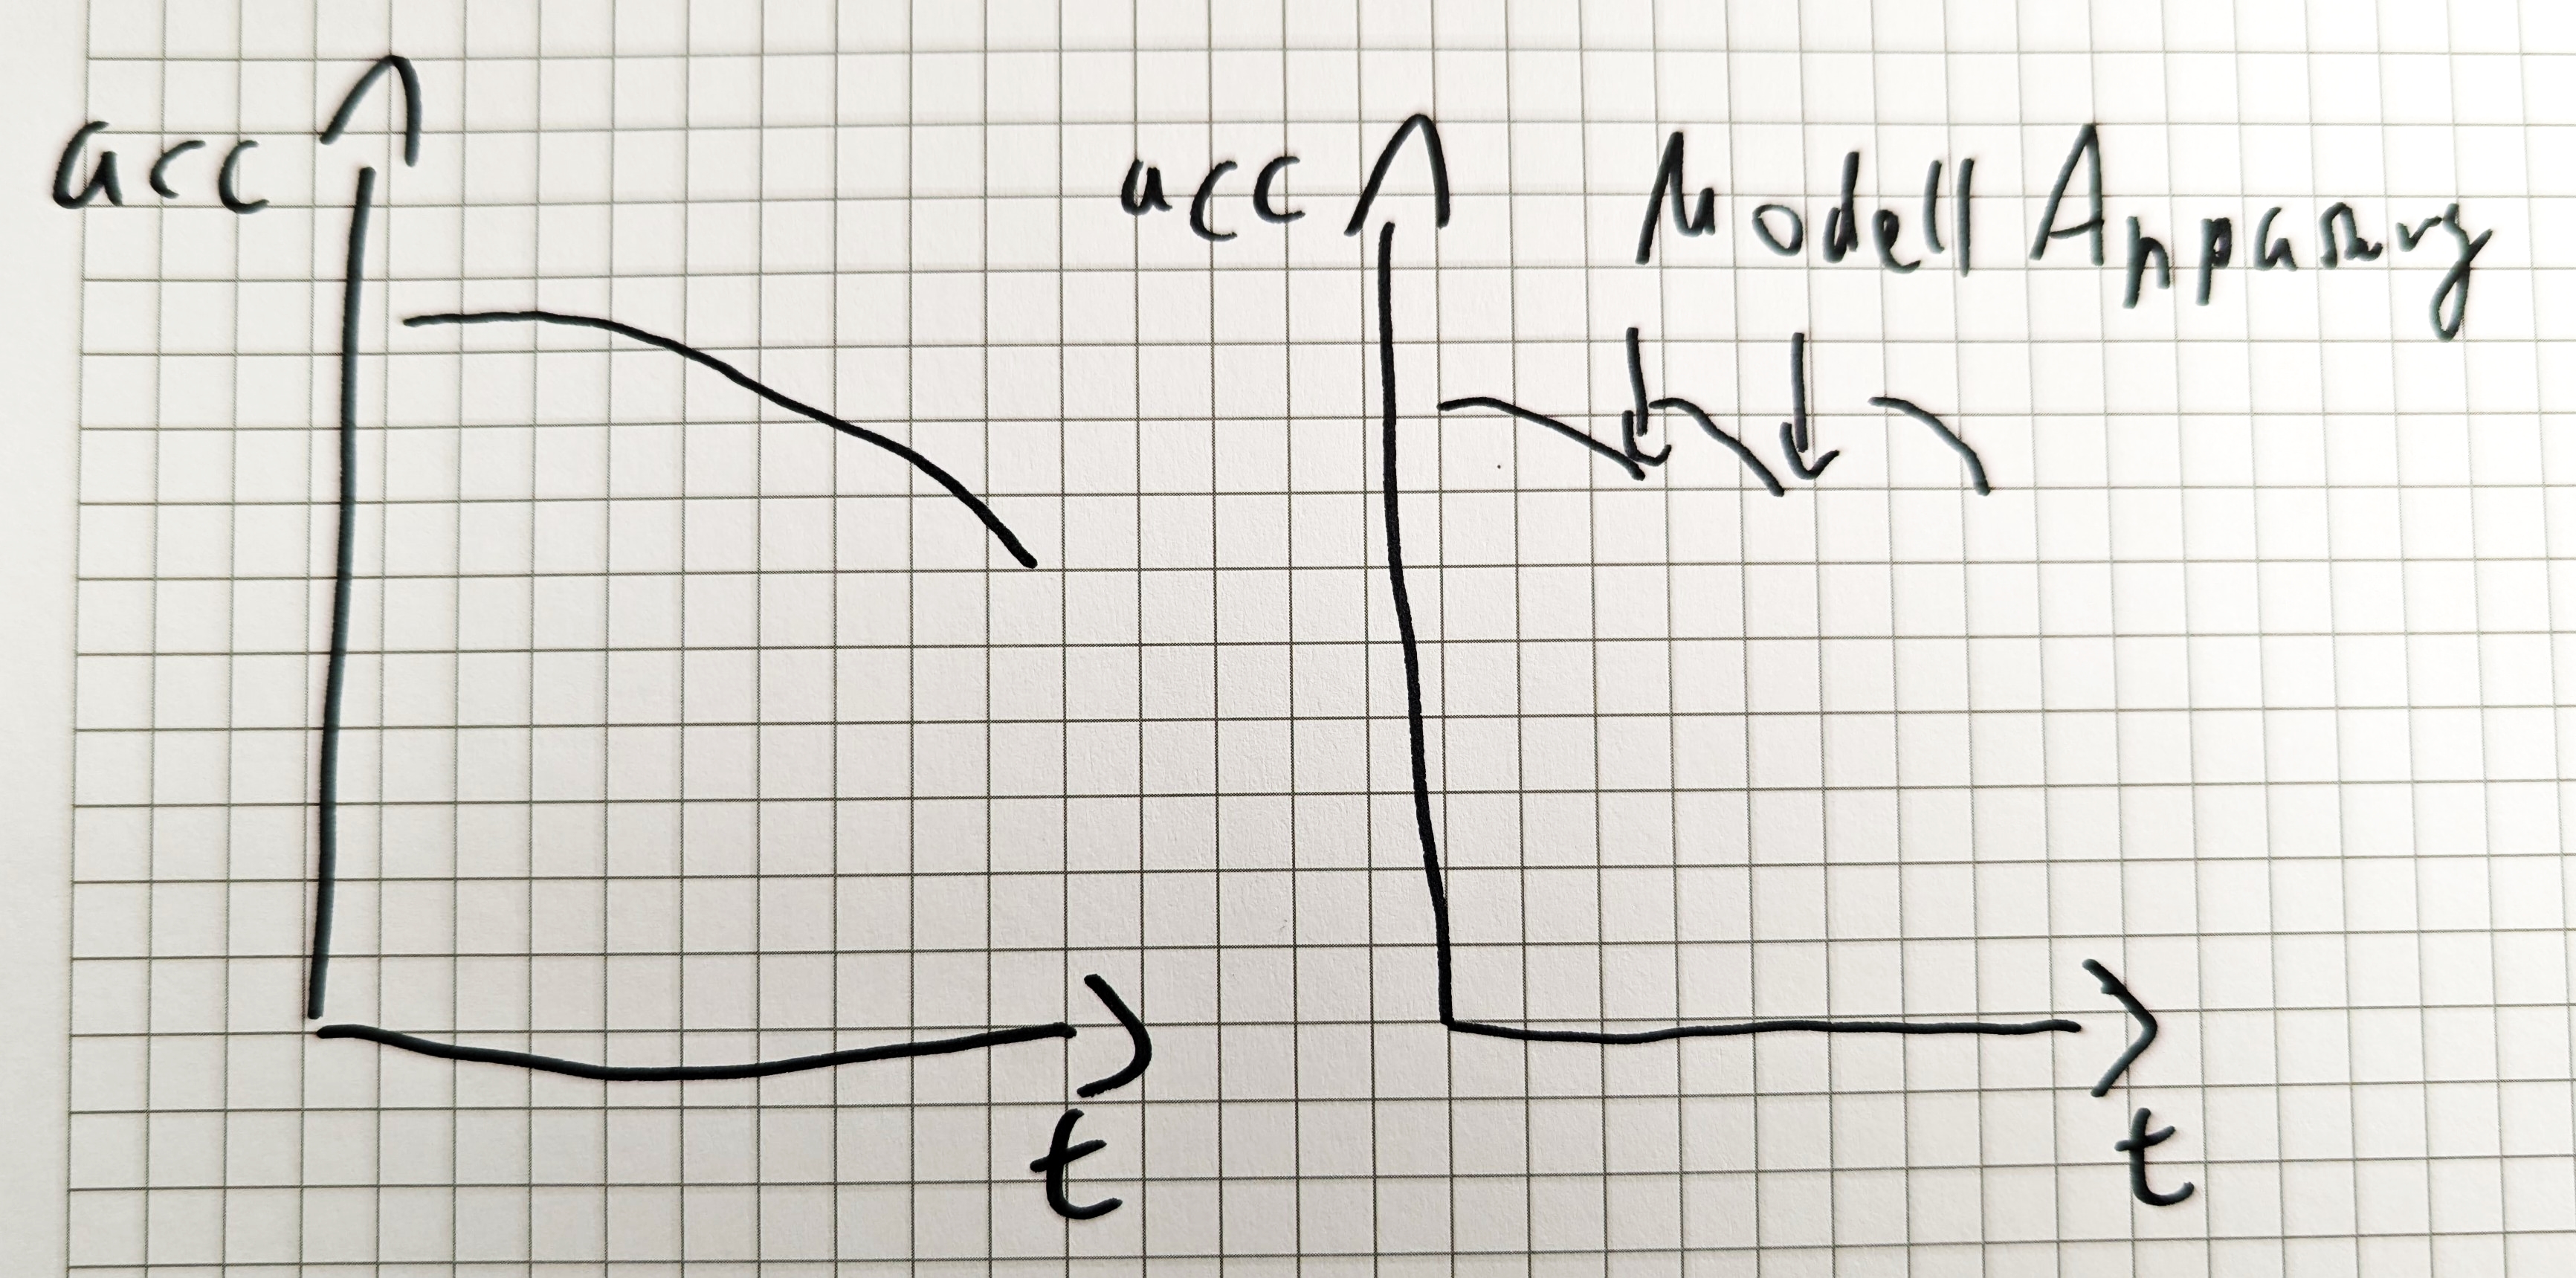 acc
t
acc
Modell Anpassung
t